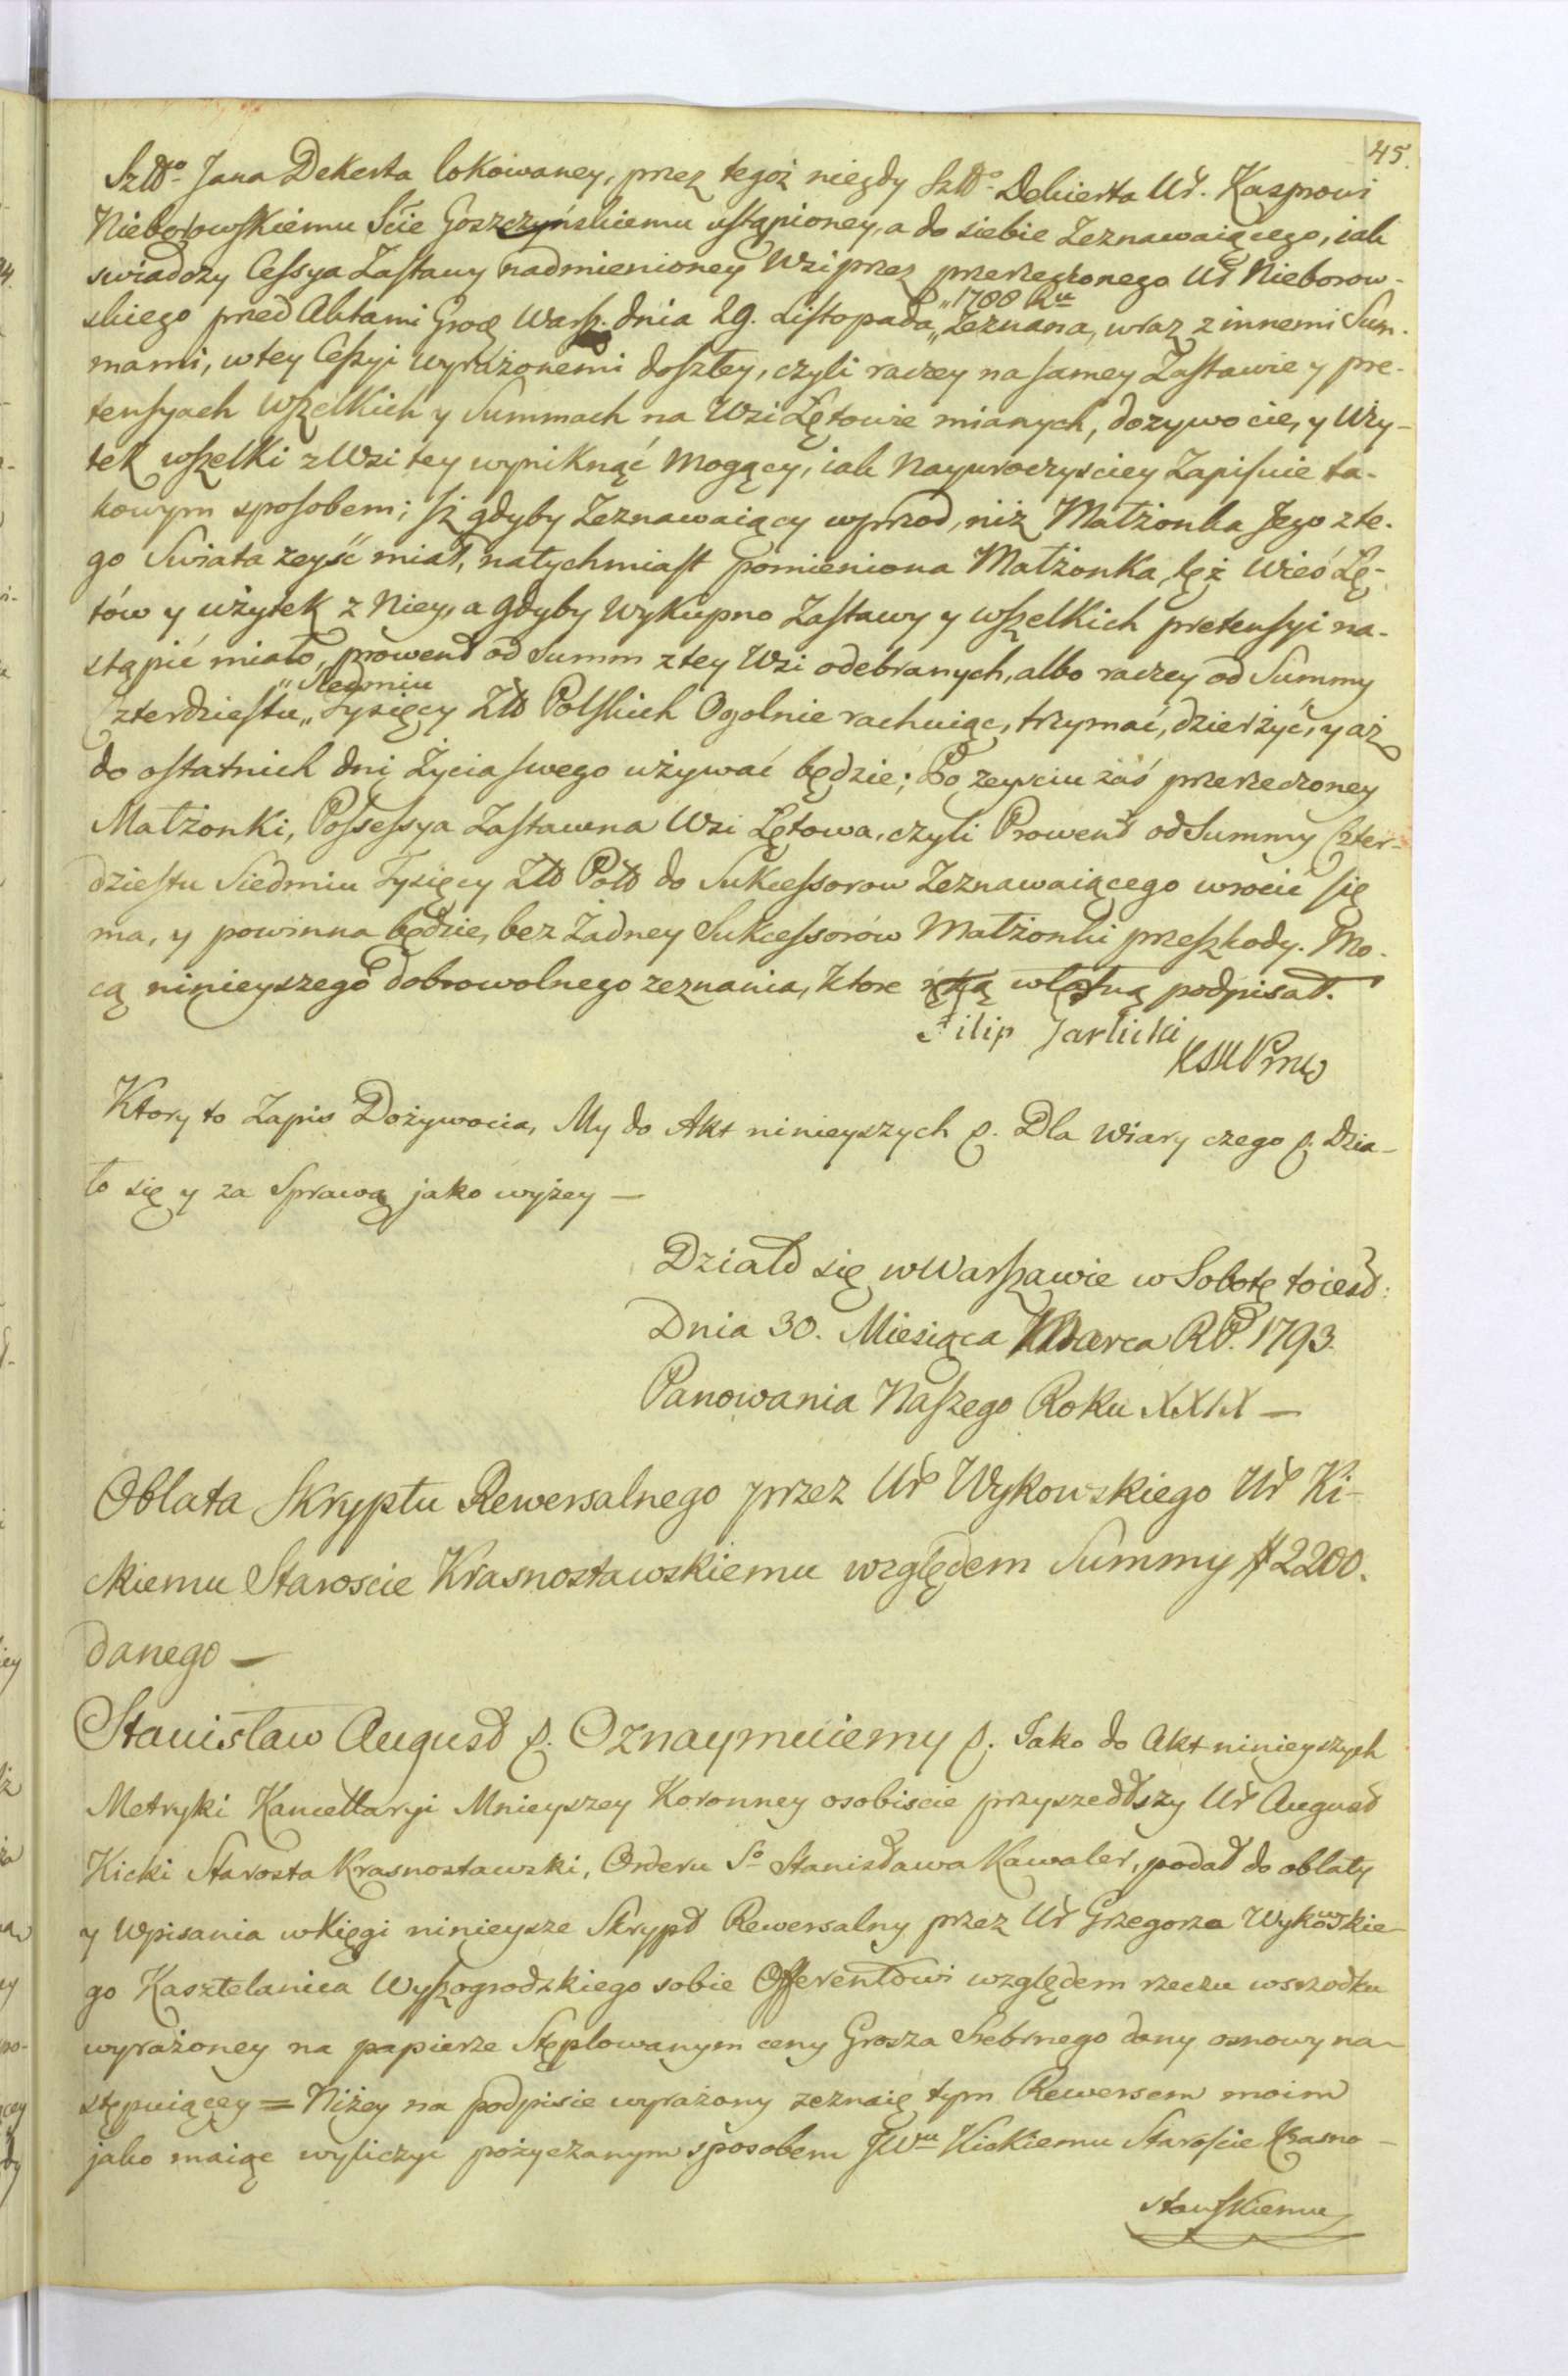 45.
Szltt° Jana Dekerta lokowaney, przez tegoż niegdy Szltt° Dekierta Ur. Kasprowi
Nieborowskiemu Scie Goszczyńskiemu ustąpioney, a do siebie Zeznawaiącego, iak
swiadczy Cessya Zastawy nadmienioney Wsi przez przerzeczonego Ur Nieborow-
skiego przed Aktami Grod Warsz. dnia 29. Listopada „1788 Ru „Zeznana, wraz z innemi Sum-
mami, w tey Cessyi wyrażonemi doszłey, czyli raczey na samey Zastawie y pre-
tensyach wszelkich y Summach na Wsi Lętowie mianych, dozywocie, y Uży-
tek wszelki z Wsi tey wyniknąć mogący, iak Nayuroczysciey Zapisuie ta-
kowym sposobem; iż gdyby Zeznawaiący wprzod, niż Małżonka Jego z te-
go Swiata zeyść miał, natychmiast pomieniona Małżonka, tęż Wieś Lę-
tów y użytek z Niey, a gdyby Wykupno Zastawy y wszelkich pretensyi na-
stąpić miało, prowent od Summ z tey Wsi odebranych, albo raczey od Summy
Czterdziestu „Siedmiu „Tysięcy Złt Polskich Ogolnie rachuiąc, trzymać, dzierżyć, y aż
do ostatnich dni Życia swego używać będzie; Po zeysciu zaś przerzeczoney
Małżonki, Possessya Zastawna Wsi Lętowa, czyli Prowent od Summy Czter-
dziestu Siedmiu Tysięcy Złt Polt do Sukcessorow Zeznawaiącego wrocić się
ma, y powinna będzie, bez Żadney Sukcessorów Małżonki przeszkody. Mo-
cą ninieyszego dobrowolnego zeznania, ktore ręką własną podpisał.
Filip Jarlicki
Ktory to Zapis Dożywocia, My do Akt ninieyszych p. Dla Wiary czego p. Dzia-
ło się y za Sprawą jako wyżey —
Działo się w Warszawie w Sobotę to iest:
Dnia 30. Miesiąca Marca RP. 1793.
Panowania Naszego Roku XXIX —
Oblata Skryptu Rewersalnego przez Ur Wykowskiego Ur Ki-
ckiemu Staroscie Krasnostawskiemu względem Summy # 2200.
danego —
Stanisław August p. Oznaymuiemy p. Jako do Akt ninieyszych
Metryki Kancellaryi Mnieyszey Koronney osobiscie przyszedłszy Ur August
Kicki Starosta Krasnostawski, Orderu S° Stanisława Kawaler, podał do oblaty
y Wpisania w Xięgi ninieysze Skrypt Rewersalny przez Ur Grzegorza Wykowskie-
go Kasztelanica Wyszogrodzkiego sobie Offerentowi względem rzeczy wsrzodku
wyrażoney na papierze Stęplowanym ceny Grosza Srebrnego dany osnowy na-
stępuiącey = Niżey na podpisie wyrażony zeznaię tym Rewersem moim
jako maiąc wyliczyć pożyczanym sposobem JWu Kickiemu Staroście Krasno-
stawskiemu